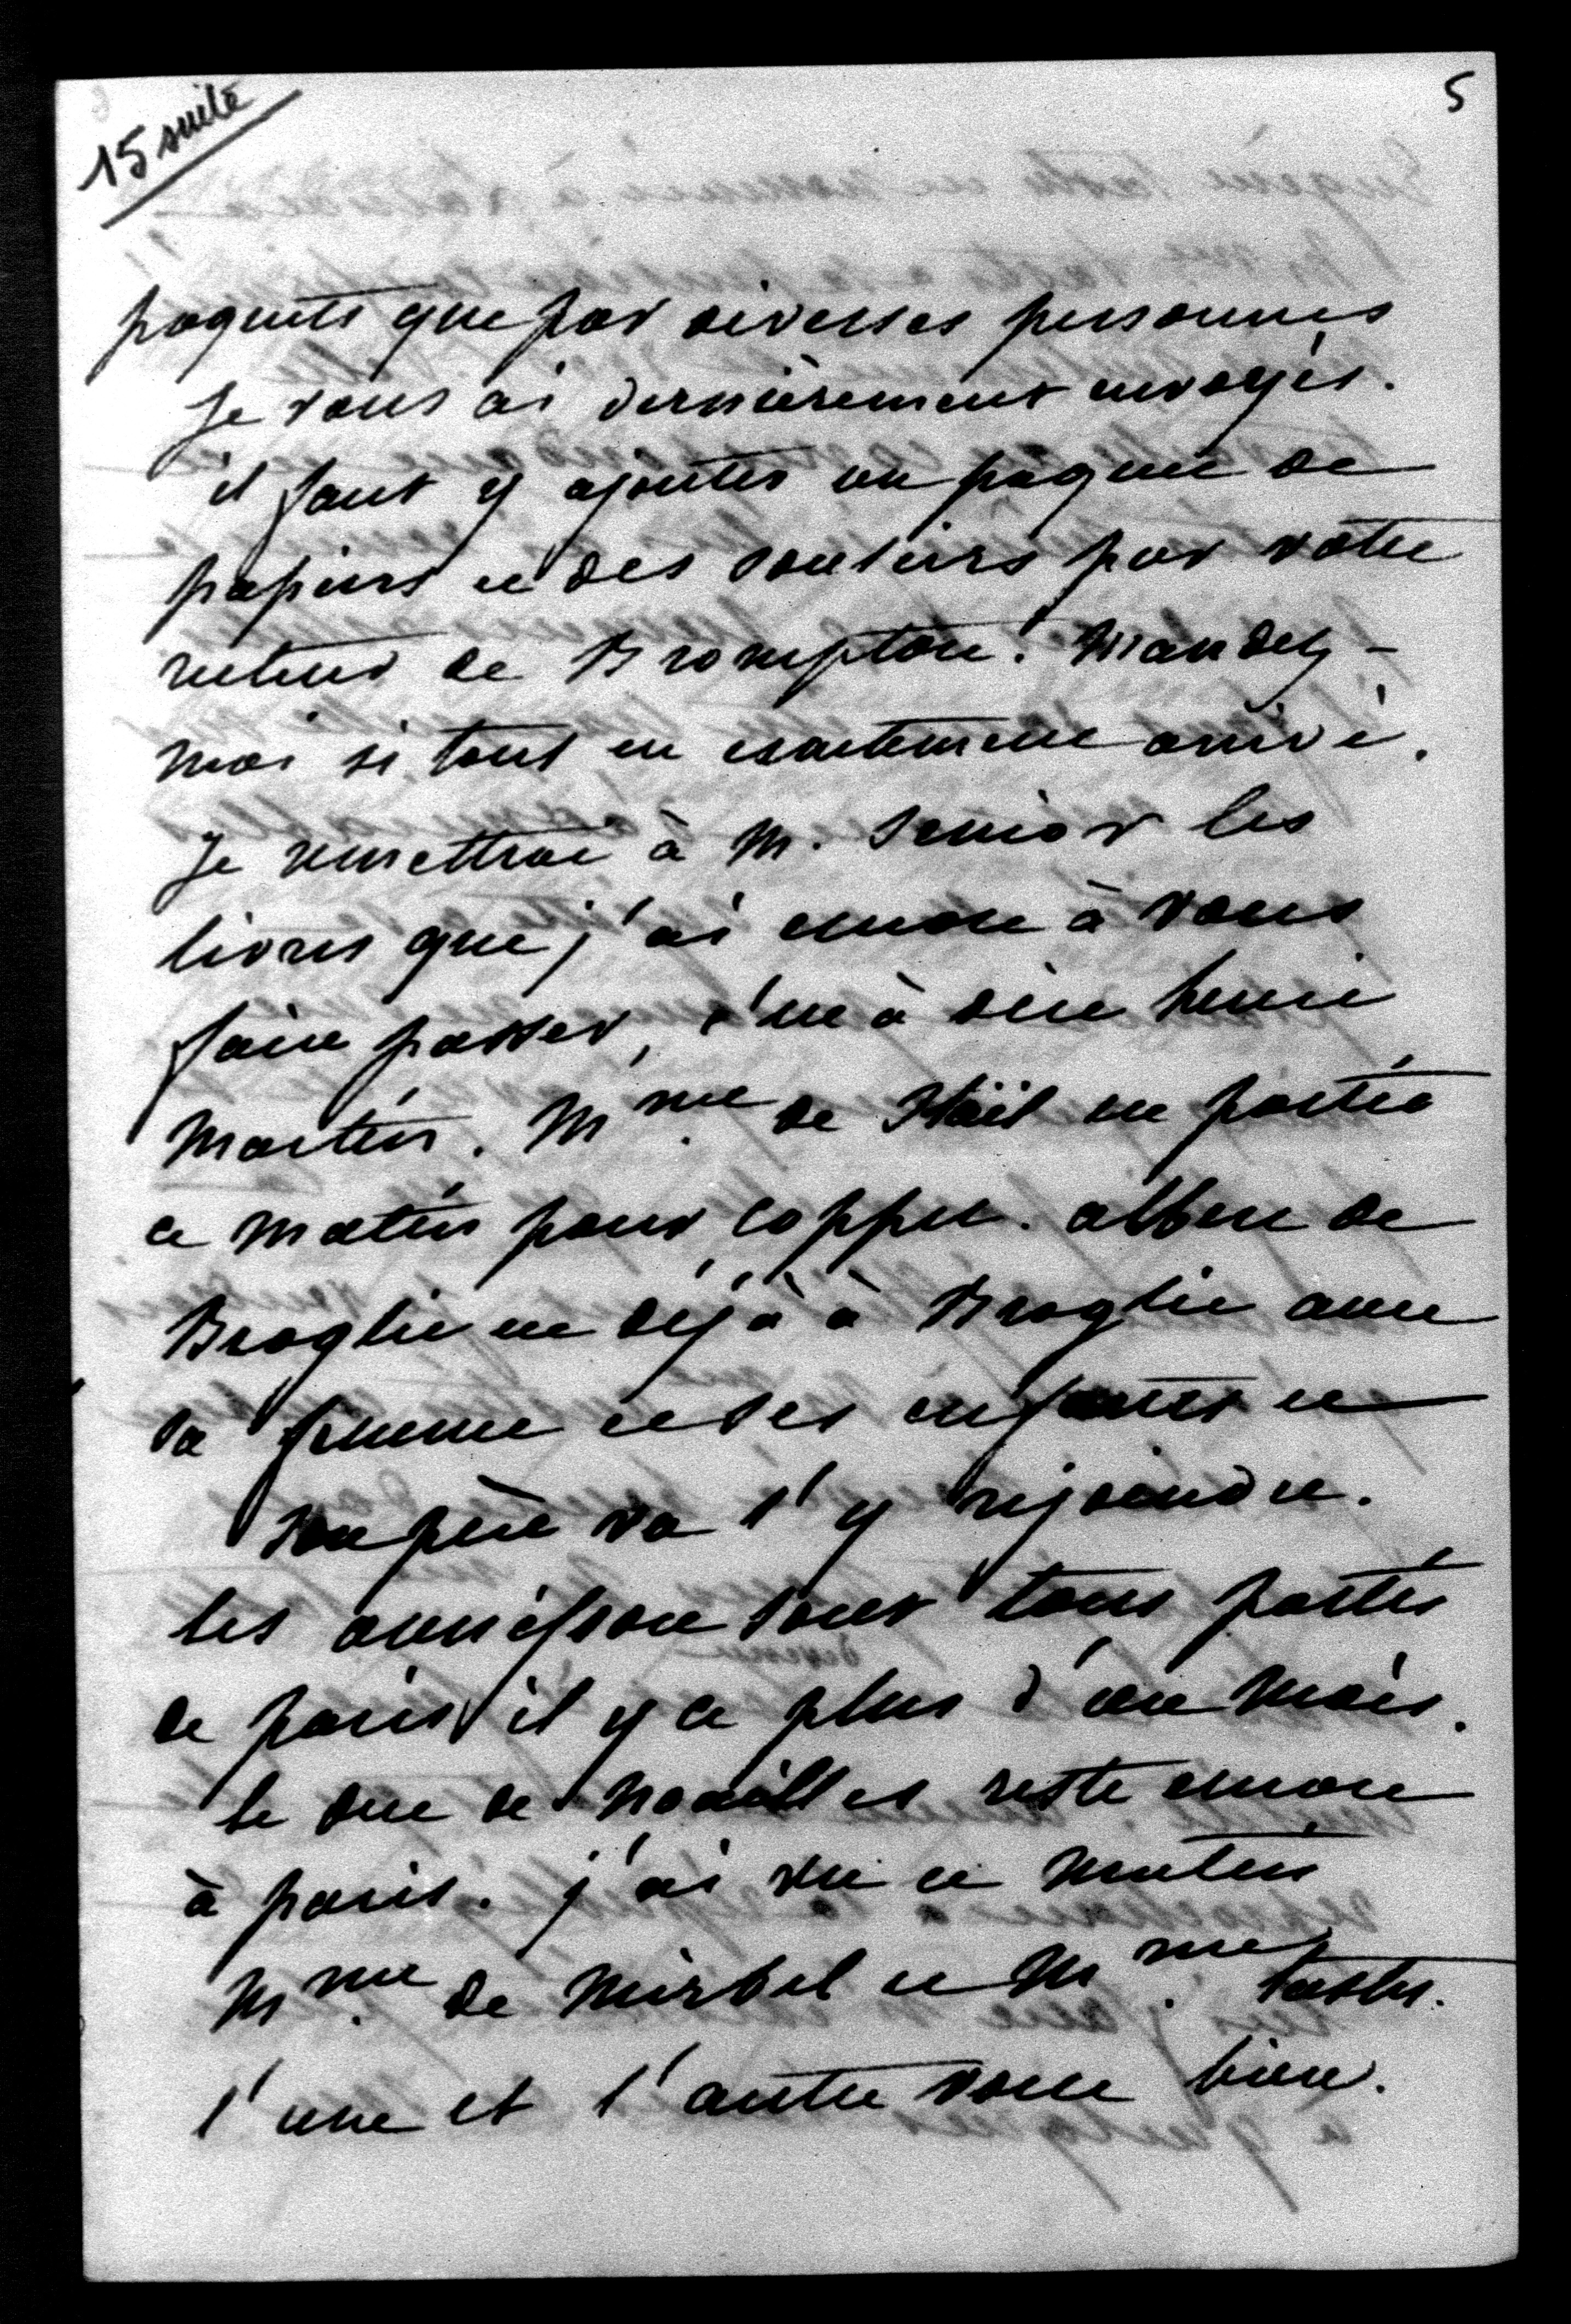 15 suite
5
paquets que par diverses personnes
je vous ai dernièrement envoyés.
il faut y ajouter un paquet de
papiers et des souliers par votre
recteur de Brompton. Mandez-
moi si tout est exactement arrivé.
Je remettrai à M. Senior les
livres que j'ai encore à vous
faire passer, c'est à dire henri
Martin. Mme de Staël est partie
ce matin pour Coppet. albert de
Broglie est déjà à Broglie avec
sa femme et ses enfants et
son père va l'y rejoindre.
les d'haussonville sont tous partis
de paris il y a plus d'un mois.
le duc de Noailles reste encore
à paris. j'ai vu ce matin
Mme de Mirbel et Mme Tastu.
l'une et l'autre vont bien.